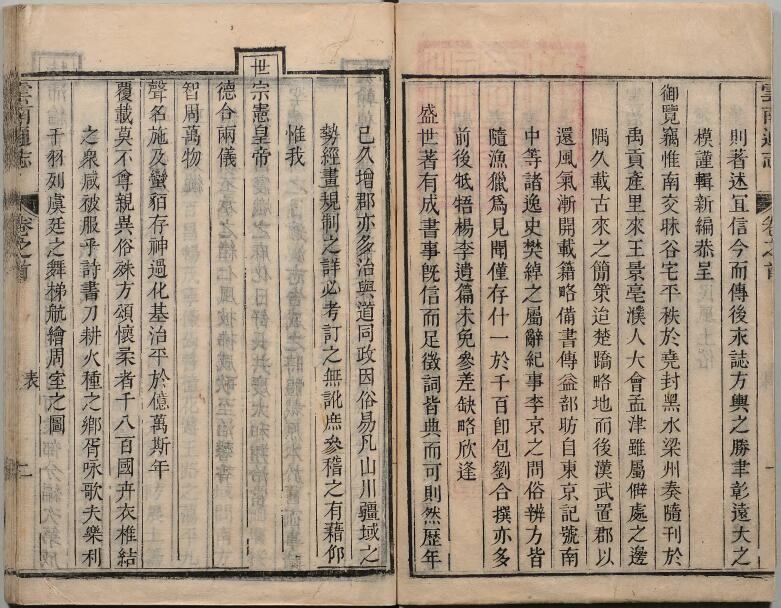 則著述宜信今而傳後永誌方輿之勝聿彰遠大之
模謹輯新編恭呈
御覽竊惟南交昧谷宅平秩於堯封黑水梁州奏隨刊於
禹貢產里來王景亳濮人大會孟津雖屬僻處之邊
隅久載古來之簡策迨楚蹻略地而後漢武置郡以
還風氣漸開載籍略備書傳益部昉自東京記號南
中等諸逸史樊綽之屬辭紀事李京之問俗辨方皆
隨漁獵爲見聞僅存什一於千百卽包劉合撰亦多
前後牴牾楊李遺篇未免參差缺略欣逢
盛世著有成書事旣信而足徵詞皆典而可則然歷年
雲南通志
卷之首
表
二
已久增郡亦多治與道同政因俗易凡山川疆域之
勢經畫規制之詳必考訂之無訛庶參稽之有藉仰
惟我
世宗憲皇帝
德合兩儀
智周萬物
聲名施及蠻貊存神過化基治平於億萬斯年
覆載莫不尊親異俗殊方頌懷柔者千八百國卉衣椎結
之衆咸被服乎詩書刀耕火種之鄉胥咏歌夫樂利
干羽列虞廷之舞梯航繪周室之圖